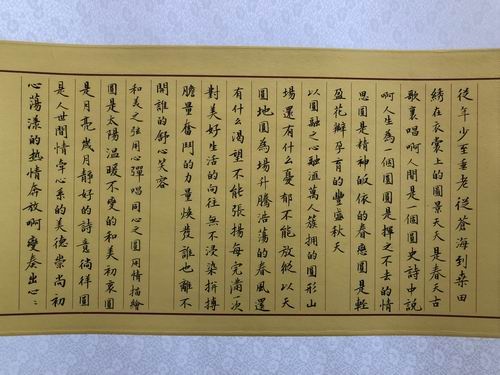 從年少至垂老從蒼海到桑田
綉在衣裳上的圖景天天是春天古
歌裏唱啊人間是一個圓史詩中説
啊人生為一個圓圓是揮之不去的情
思圓是精神皈依的春戀圓是輕
盈花瓣孕育的豐盛秋天
以圓融之心融滙萬人簇拥的圓形山
場還有什么憂郁不能放縱以天
圓地圓為場升騰浩蕩的春風還
有什么渴望不能張揚每完滿一次
對美好生活的向往無不浸染拼搏
膽量奮鬥的力量焕發誰也離不
開誰的舒心笑容
和美之弦用心彈唱同心之圓用情描繪
圓是太陽温暖不變的和美初裏圓
是月亮歲月靜好的詩意徜徉圓
是人世間情牢心系的美德崇高初
心蕩漾的热情奔放啊變奏出心